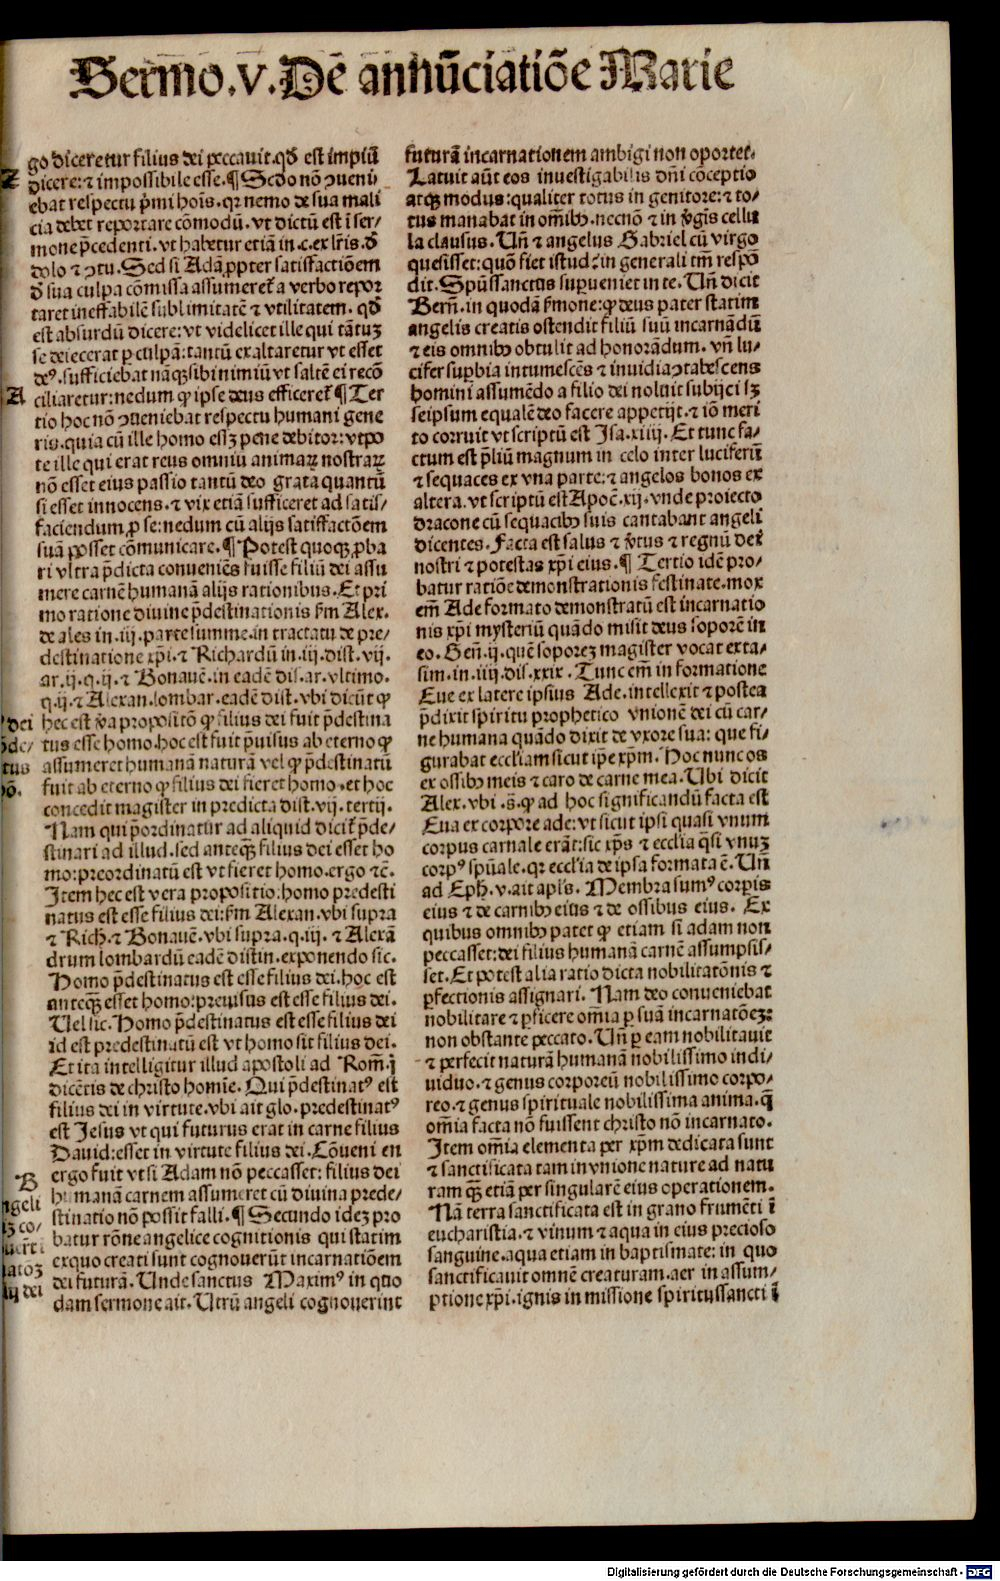 Sermo.v. De annūciatiōe Marie
go diceretur filius dei peccauit.qđ est impiū
dicere:⁊ impossibile esse.¶ Scđo nō ꝯueni-
ebat respectu p̄mi hoīs.qꝛ nemo de sua mali
cia debet reportare cōmodū.vt dictū est ī ser-
mone p̄cedenti.vt habetur etiā in.c.ex lr̄is.đ
dolo ⁊ ꝯtu.Sed si Adā ꝓpter satisfactiōem
đ sua culpa cōmissa assumeret̄ a verbo repor
taret ineffabilē sublimitatē ⁊ vtilitatem.qđ
est absurdū dicere:vt videlicet ille qui tātuꝫ
se deiecerat ꝑ culpā:tantū exaltaretur vt esset
deꝰ.sufficiebat nāqꝫ sibi nimiū vt saltē ei recō
ciliaretur:nedum ꝙ ipse deus efficeret̄ ¶ Ter
tio hoc nō ꝯueniebat respectu humani gene
ris.quia cū ille homo essꝫ pene debitor:vtpo
te ille qui erat reus omniū animaꝝ nostraꝝ
nō esset eius passio tantū deo grata quantū
si esset innocens.⁊ vix etiā sufficeret ad satis-
faciendum ꝓ se:nedum cū alijs satisfactōem
suā posset cōmunicare.¶ Potest quoqꝫ ꝓba
ri vltra p̄dicta conueniēs fuisse filiū dei assu
mere carnē humanā alijs rationibus.Et pri
mo ratione diuine p̄destinationis ẜm Alex.
de ales in.iij.parte summe.in tractatu de pre-
destinatione xp̄i.⁊ Richardū in.iij.dist.vij.
ar.ij.q.ij.⁊ Bonauē.in eadē dis.ar.vltimo.
q.ij.⁊ Alexan.lombar.eadē dist.vbi dicūt ꝙ
hec est v̄a propositō ꝙ filius dei fuit p̄destina
tus esse homo.hoc est fuit p̄uisus ab eterno ꝙ
assumeret humanā naturā vel ꝙ p̄destinatū
fuit ab eterno ꝙ filius dei fieret homo.et hoc
concedit magister in predicta dist.vij.tertij.
Nam qui p̄ordinatur ad aliquid dicit̄ p̄de-
stinari ad illud.sed anteqꝫ filius dei esset ho
mo:preordinatū est vt fieret homo.ergo ⁊c̄.
Item hec est vera propositio:homo predesti
natus est esse filius dei:ẜm Alexan.vbi supra
⁊ Rich.⁊ Bonauē.vbi supra.q.iij.⁊ Alexā
drum lombardū eadē distin.exponendo sic.
Homo p̄destinatus est esse filius dei.hoc est
anteqꝫ esset homo:preuisus est esse filius dei.
Uel sic.Homo p̄destinatus est esse filius dei
id est predestinatū est vt homo sit filius dei.
Et ita intelligitur illud apostoli ad Rom̄.j
dicētis de christo homīe.Qui p̄destinatꝰ est
filius dei in virtute.vbi ait glo.predestinatꝰ
est Jesus vt qui futurus erat in carne filius
Dauid:esset in virtute filius dei.Cōueni en
ergo fuit vt si Adam nō peccasset:filius dei
humanā carnem assumeret cū diuina prede-
stinatio nō possit falli.¶ Secundo ideꝫ pro
batur rōne angelice cognitionis qui statim
exquo creati sunt cognouerūt incarnatiōem
dei futurā.Unde sanctus Maximꝰ in quo
dam sermone ait.Utrū angeli cognouerint
Z
A
dei
p̄de-
tus
hō.
B
ngeli
iꝫ co-
uert i
atōꝫ
lij dei
futurā incarnationem ambigi non oportet.
Latuit aūt eos inuestigabilis dn̄i cōceptio
atqꝫ modus:qualiter totus in genitore:⁊ to-
tus manabat in om̄ibꝫ.necnō ⁊ in v̄gis cellu
la clausus.Un̄ ⁊ angelus Gabriel cū virgo
quesisset:quō fiet istud:in generali tm̄ respō
dit.Spūssanctus suꝑueniet in te.Un̄ dicit
Bern̄.in quodā ẜmone:ꝙ deus pater statim
angelis creatis ostendit filiū suū incarnādū
⁊ eis omnibꝫ obtulit ad honorādum.vn̄ lu-
cifer suꝑbia intumescēs ⁊ inuidia ꝯtabescens
homini assumēdo a filio dei noluit subijci sꝫ
seipsum equalē deo facere appetijt.⁊ iō meri
to corruit vt scriptū est Isa.xiiij.Et tunc fa-
ctum est p̄liū magnum in celo inter luciferū
⁊ sequaces ex vna parte:⁊ angelos bonos ex
altera.vt scriptū est Apoc̄.xij.vnde proiecto
dracone cū sequacibꝫ suis cantabant angeli
dicentes.Facta est salus ⁊ v̄tus ⁊ regnū dei
nostri ⁊ potestas xp̄i eius.¶ Tertio idē pro-
batur ratiōe demonstrationis festinate.mox
em̄ Ade formato demonstratū est incarnatio
nis xp̄i mysteriū quādo misit deus soporē in
eo.Gen̄.ij.quē soporeꝫ magister vocat exta-
sim.in.iiij.dis.xxix.Tunc em̄ in formatione
Eue ex latere ipsius Ade.intellexit ⁊ postea
p̄dixit spiritu prophetico vnionē dei cū car-
ne humana quādo dixit de vxore sua:que fi-
gurabat eccliam sicut ip̄e xp̄m.Hoc nunc os
ex ossibꝫ meis ⁊ caro de carne mea.Ubi dicit
Alex.vbi .s̄.ꝙ ad hoc significandū facta est
Eua ex corpore ade:vt sicut ipsi quasi vnum
corpus carnale erāt:sic xp̄s ⁊ ecclia q̄si vnuꝫ
corpꝰ spūale.qꝛ eccl'ia de ipsa formata ē.Un̄
ad Eph.v.ait apl's.Membra sumꝰ corp̄is
eius ⁊ de carnibꝫ eius ⁊ de ossibus eius.Ex
quibus omnibꝫ patet ꝙ etiam si adam non
peccasset:dei filius humanā carnē assumpsis-
set.Et potest alia ratio dicta nobilitatōnis ⁊
ꝑfectionis assignari.Nam deo conueniebat
nobilitare ⁊ ꝑficere om̄ia ꝑ suā incarnatōeꝫ:
non obstante peccato.Un̄ ꝑ eam nobilitauit
⁊ perfecit naturā humanā nobilissimo indi-
uiduo.⁊ genus corporeū nobilissimo corpo-
reo.⁊ genus spirituale nobilissima anima.q̄
om̄ia facta nō fuissent christo nō incarnato.
Item om̄ia elementa per xp̄m dedicata sunt
⁊ sanctificata tam in vnione nature ad natu
ram qꝫ etiā per singularē eius operationem.
Nā terra sanctificata est in grano frumēti ī
eucharistia.⁊ vinum ⁊ aqua in eius precioso
sanguine.aqua etiam in baptismate:in quo
sanctificauit omnē creaturam.aer in assum-
ptione xp̄i.ignis in missione spiritussancti ī
Digitalisierung gefördert durch die Deutsche Forschungsgemeinschaft - DFG